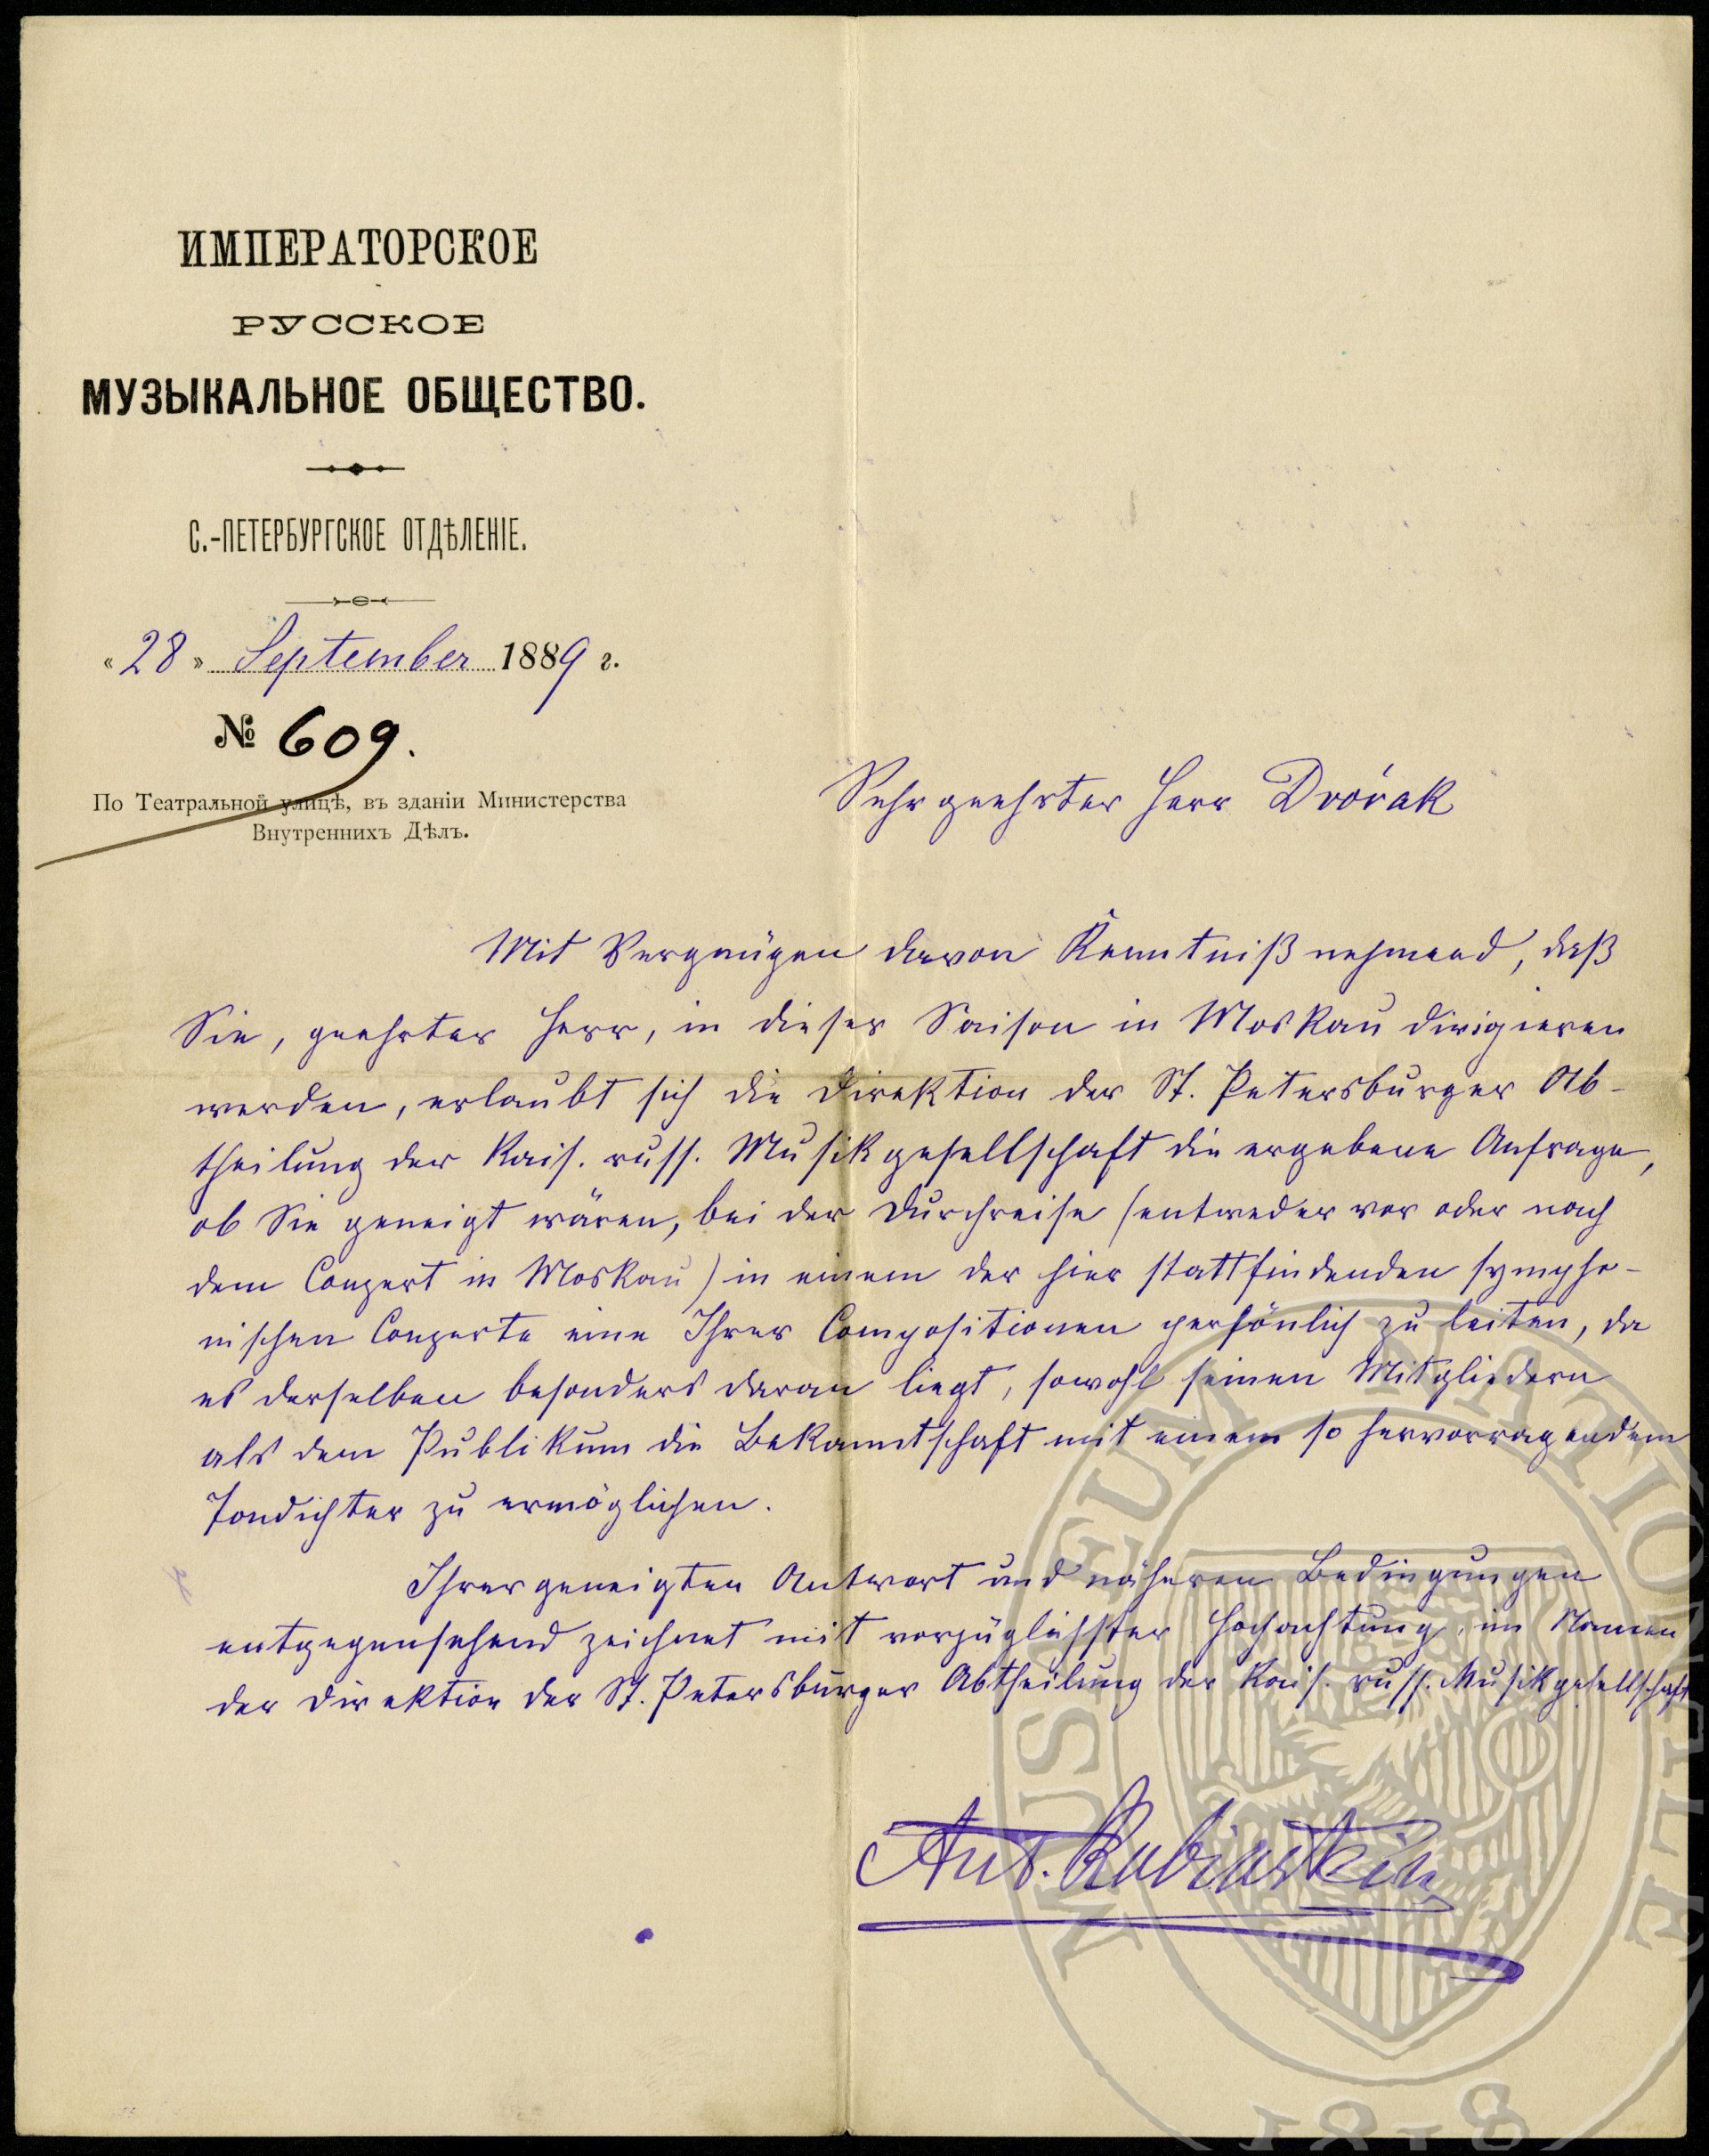 ИМПЕРАТОРСКОЕ
РУССКОЕ
МУЗЫКАЛЬНОЕ ОБЩЕСТВО.
С.-ПЕТЕРБУРГСКОЕ ОТДѢЛЕНІЕ.
« 28 » September 1889 г.
№ 609.
По Театральной улицѣ, въ зданіи Министерства
Внутреннихъ Дѣлъ.
Sehr geehrter Herr Dvórak
Mit Vergnügen davon Kenntniß nehmend, daß
Sie, geehrter Herr, in dieser Saison in Moskau dirigieren
werden, erlaubt sich die Direktion der St. Petersburger Ab-
theilung der Kais. russ. Musikgesellschaft die ergebene Anfrage,
ob Sie geneigt wären, bei der Durchreise (entweder vor oder nach
dem Conzert in Moskau) in einem der hier stattfindenden sympho-
nischen Conzerte eine Ihrer Compositionen persönlich zu leiten, da
es derselben besonders daran liegt, sowohl seinen Mitgliedern
als dem Publikum die Bekanntschaft mit einem so hervorragendem
Tondichter zu ermöglichen.
Ihrer geneigten Antwort und näheren Bedingungen
entgegensehend zeichnet mit vorzüglichster Hochachtung, im Namen
der Direktion der St. Petersburger Abtheilung der Kais. russ. Musikgesellschaft
Ant. Rubinstein
MUSAEUM NATIONALE
1818